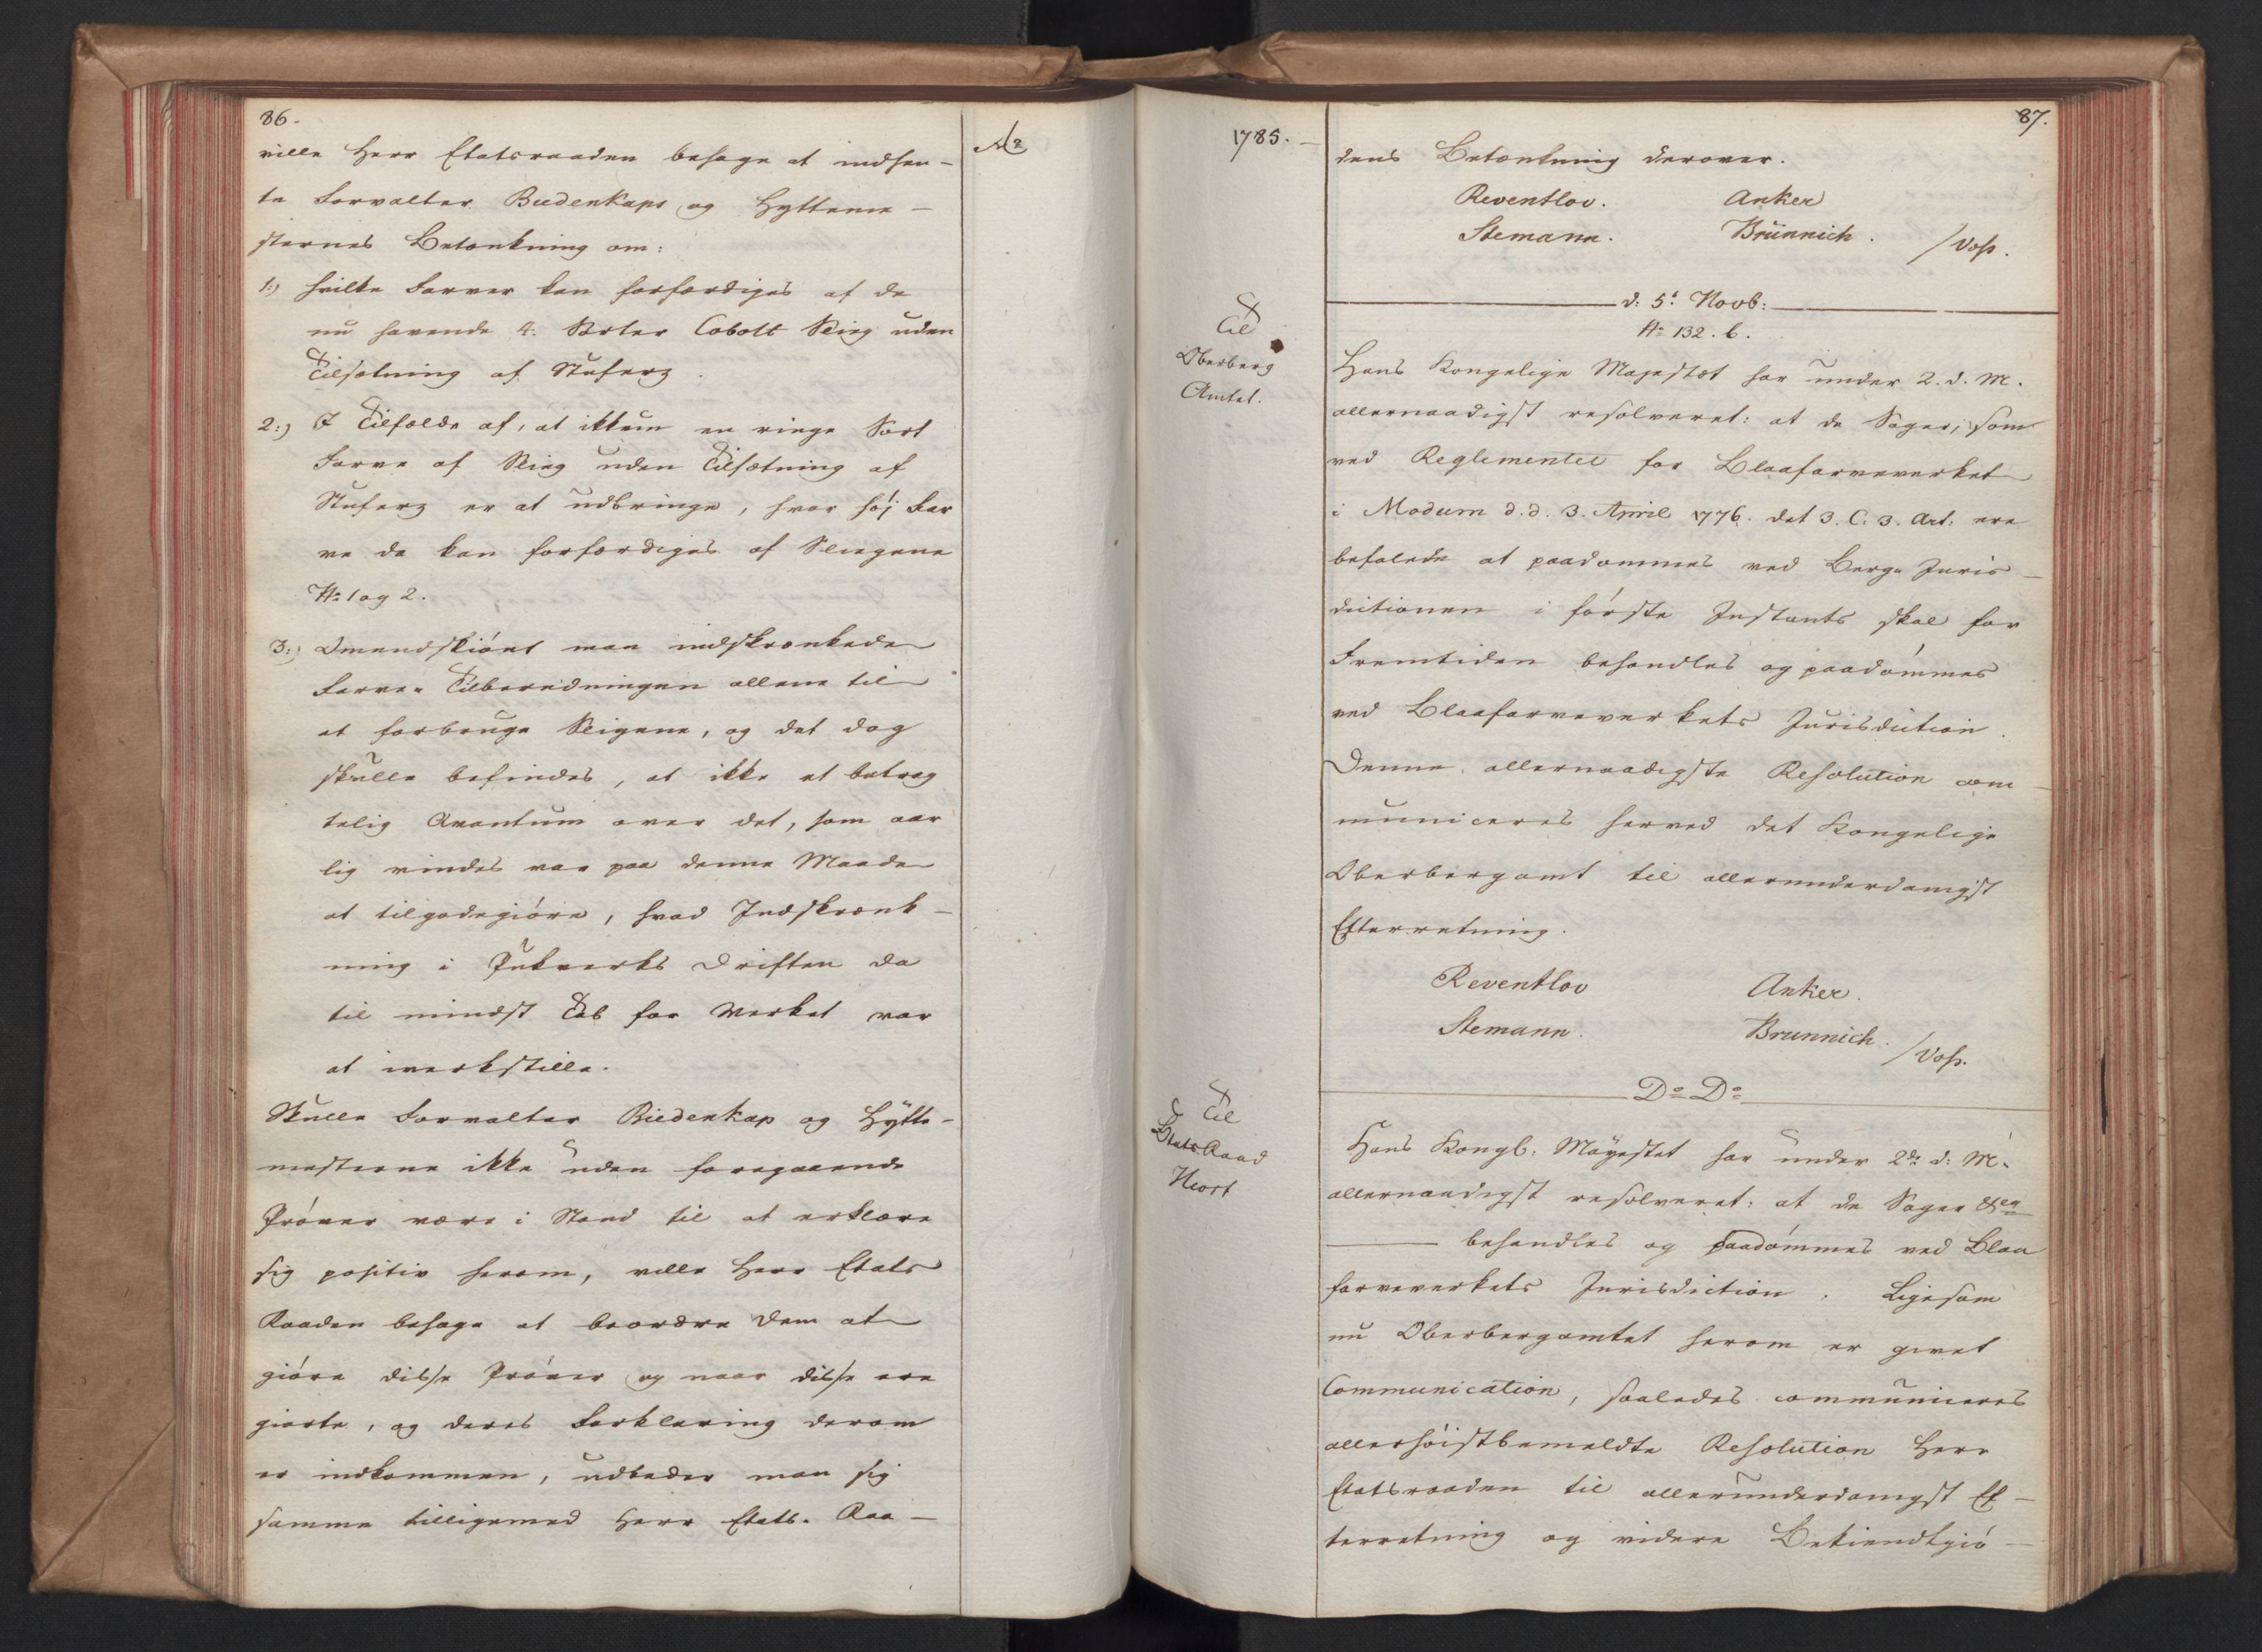 86.
ville Herr Etatsraaden behage at indhen-
te Forvalter Biedenkaps og Hytteme-
sternes Betænkning om:
1:) hvilke Farver kan forfærdiges af de
nu havende 4: Sorter Cobolt Slieg uden
Tilsætning af Stuferz.
2:) I Tilfælde af, at ikkun en ringe Sort
Farve af Slieg uden Tilsætning af
Stuferz er at udbringe, hvor høj Far
ve da kan forfærdiges af Sliegene
No 1 og 2.
3:) Omendskiønt man indskrænkede
Farve-Tilberedningen allene til
at forbruge Sliegene, og det dog
skulle befindes, at ikke et betrag
telig Qvantum over det, som aar
lig vindes var paa denne Maade
at tilgodegiøre, hvad Indskrænk-
ning i Pukverks Driften da
til mindst Tab for Verket var
at iverkstille.
Skulle Forvalter Biedenkap og Hytte-
mesterne ikke uden foregaaende
Prøver være i Stand til at erklære
sig positiv herom, ville Herr Etats
Raaden behage at beordre dem at
giøre disse Prøver og naar disse ere
giorte, og deres Forklaring derom
er indkommen, udbeder man sig
samme tilligemed Herr Etats-Raa-
Ao
1785.
87.
dens Betænkning derover.
Reventlov. Anker
Stemann. Brünnich. /Voss.
d: 5t Novb:
No 132. b.
Til
Oberberg
Amtet.
Hans Kongelige Majestæt har under 2. d. M.
allernaadigst resolveret: at de Sager, som
ved Reglementet for Blaafarveverket
i Modum d.d. 3. April 1776. det 3. C. 3. Art: ere
befalede at paadømmes ved Berg-Juris-
dictionen i første Instants skal for
Fremtiden behandles og paadømmes
ved Blaafarveverkets Jurisdiction.
Denne allernaadigste Resolution com-
municeres herved det Kongelige
Oberbergamt til allerunderdanigst
Efterretning.
Reventlov Anker.
Stemann. Brunnich. /Voss.
Do Do
Til
Etats Raad
Hiort
Hans Kongl: Mayestet har under 2de d: M.
allernaadigst resolveret: at de Sager &ca
behandles og paadømmes ved Blaa
farveverkets Jurisdiction. Ligesom
nu Oberbergamtet herom er givet
Communication, saaledes communiceres
allerhøistbemeldte Resolution Herr
Etatsraaden til allerunderdanigst Ef-
terretning og videre Bekiendtgiø-